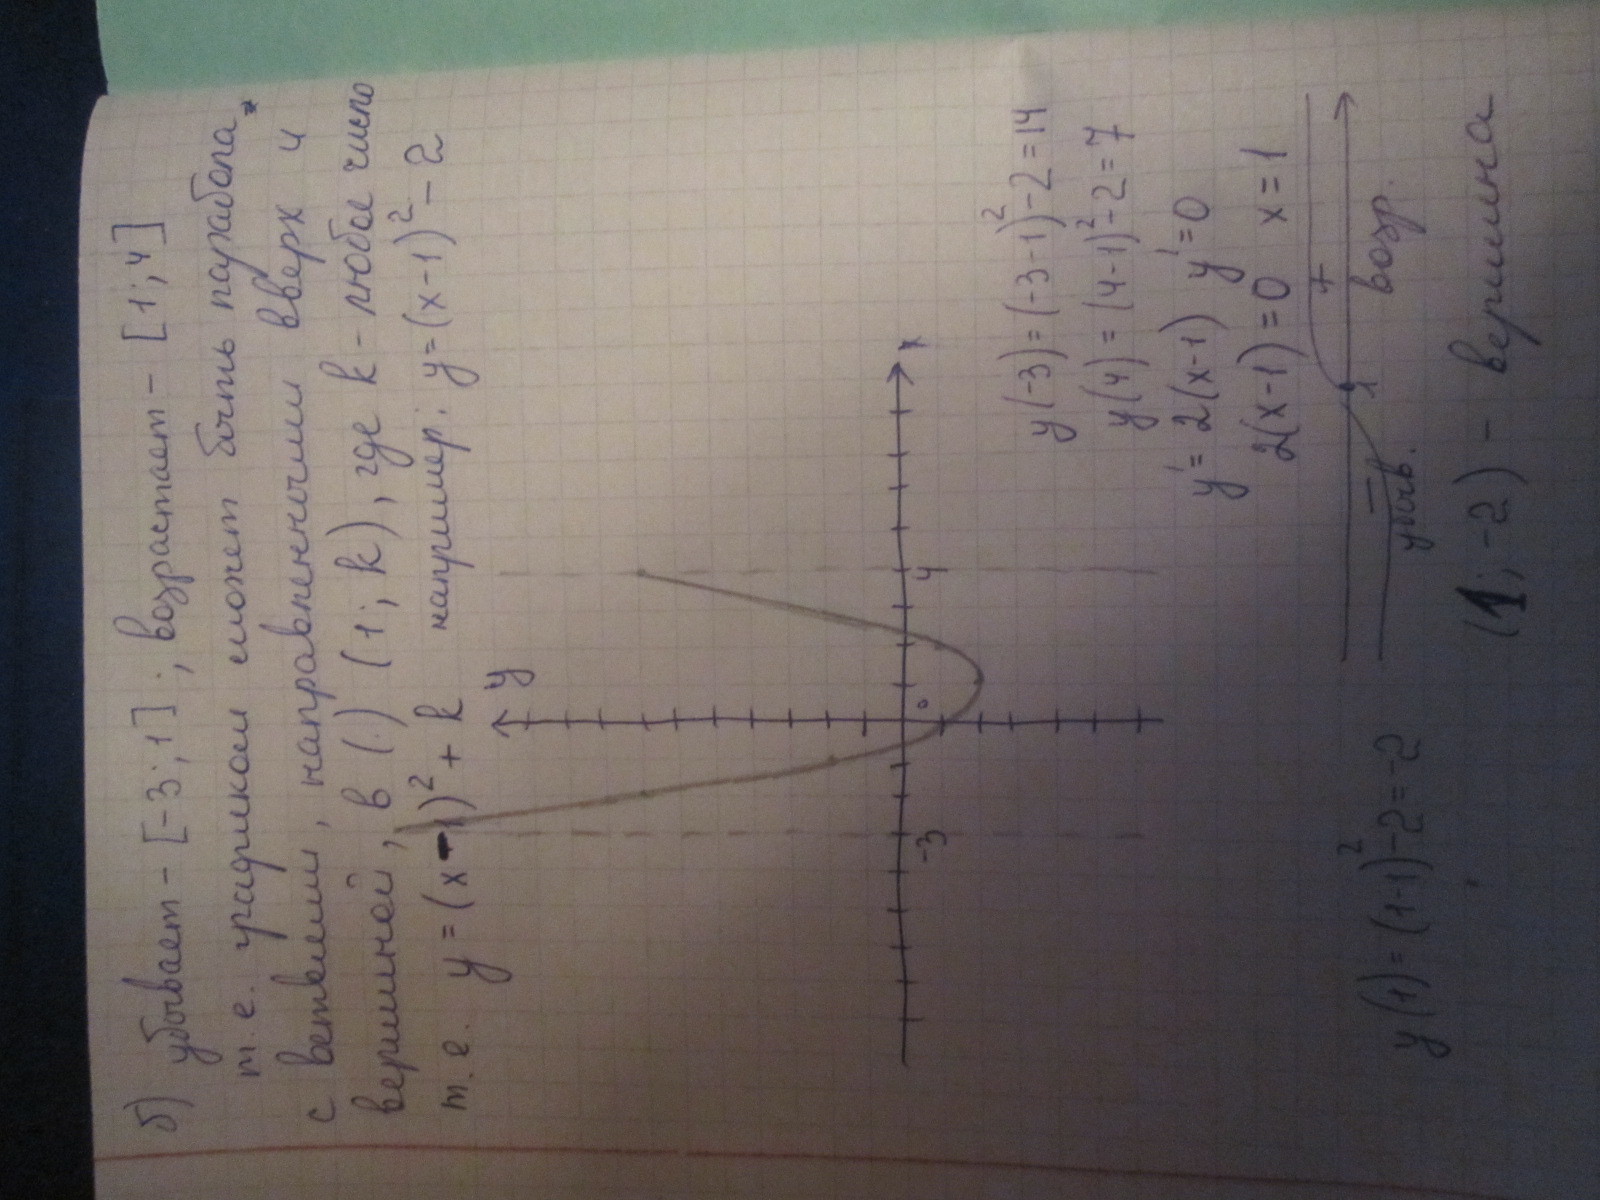 б) убывает - [-3; 1] ; возрастает - [1; 4]
т.е. графиком может быть парабола
с ветвями, направленными вверх и
вершиной, в (.) (1; k), где k - любое число
т.е. y = (x - 1)² + k например: y = (x - 1)² - 2
y
x
0
-3
4
y(-3) = (-3-1)² - 2 = 14
y(4) = (4-1)² - 2 = 7
y' = 2(x-1) y' = 0
2(x-1) = 0 x = 1
- +
1
убыв. возр.
y(1) = (1-1)² - 2 = -2
(1; -2) - вершина